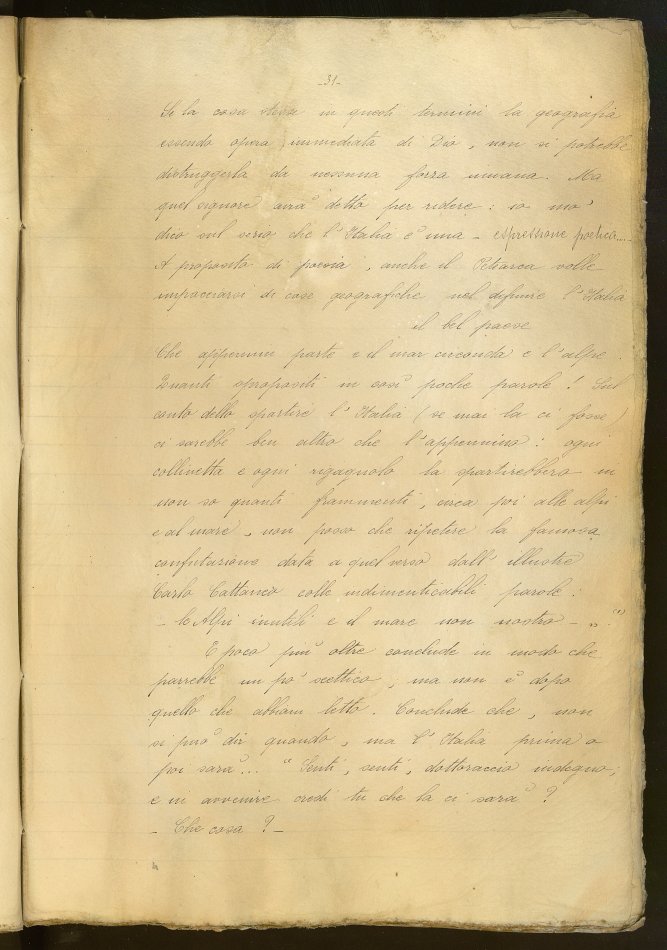 -31-
Se la cosa stesse in questi termini la geografia
essendo opera immediata di Dio, non si potrebbe
distruggerla da nessuna forza umana. Ma
quel signore avra' detto per ridere: io mo'
dico sul serio che l'Italia e' una - espressione poetica...-
A proposito di poesia, anche il Petrarca volle
impacciarsi di cose geografiche nel definire l'Italia
il bel paese
Che appennin parte e il mar circonda e l'alpe.
Quanti spropositi in cosi' poche parole! Sul
conto dello spartire l'Italia (se mai la ci fosse)
ci sarebbe ben altro che l'appennino: ogni
collinetta e ogni rigagnolo la spartirebbero in
non so quanti frammenti, circa poi alle alpi
e al mare, non posso che ripetere la famosa
confutazione data a quel verso dall'illustre
Carlo Cattaneo colle indimenticabili parole:
- le Alpi inutili e il mare non nostro - „ "
E poco piu' oltre conclude in modo che
parrebbe un po' scettico, ma non e' dopo
quello che abbiam letto. Conclude che, non
si puo' dir quando, ma l'Italia prima o
poi sara'... " Senti, senti, dottoraccio indegno;
e in avvenire credi tu che la ci sara'?
- Che cosa? -